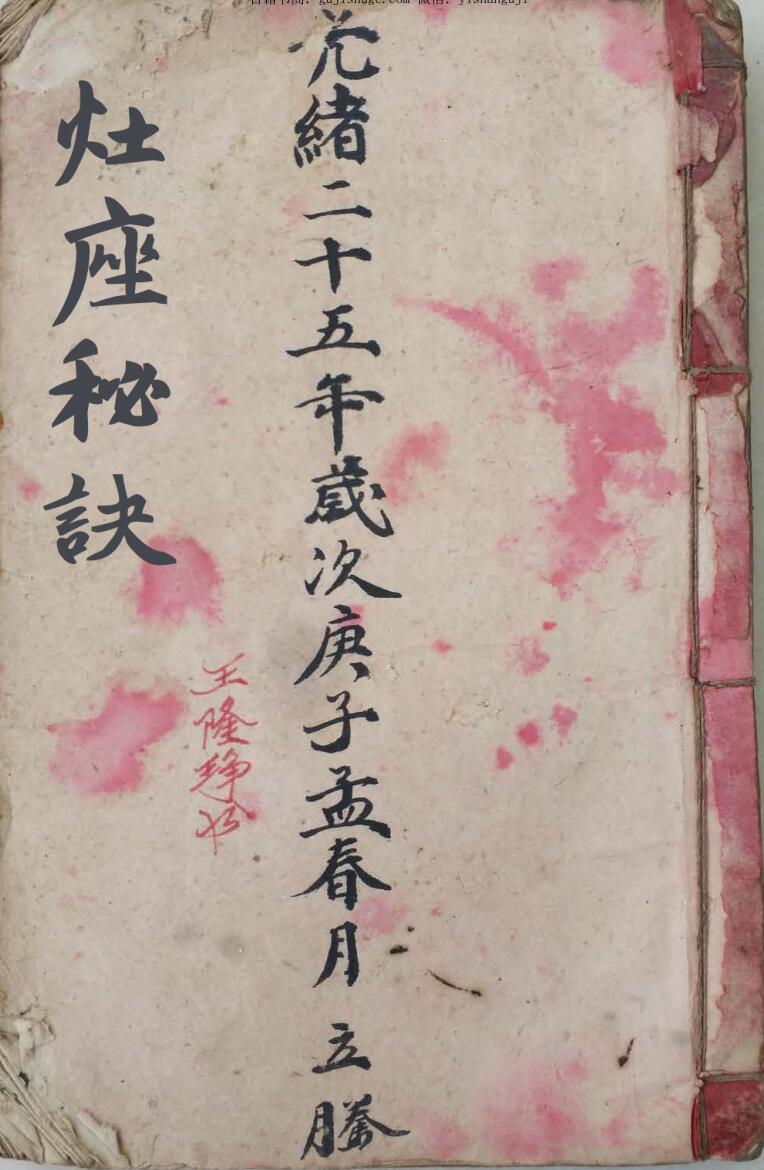 古籍书阁: gujishuge.com 微信: yishanguji
光緒二十五年歲次庚子孟春月 立謄
王隆
灶座秘訣